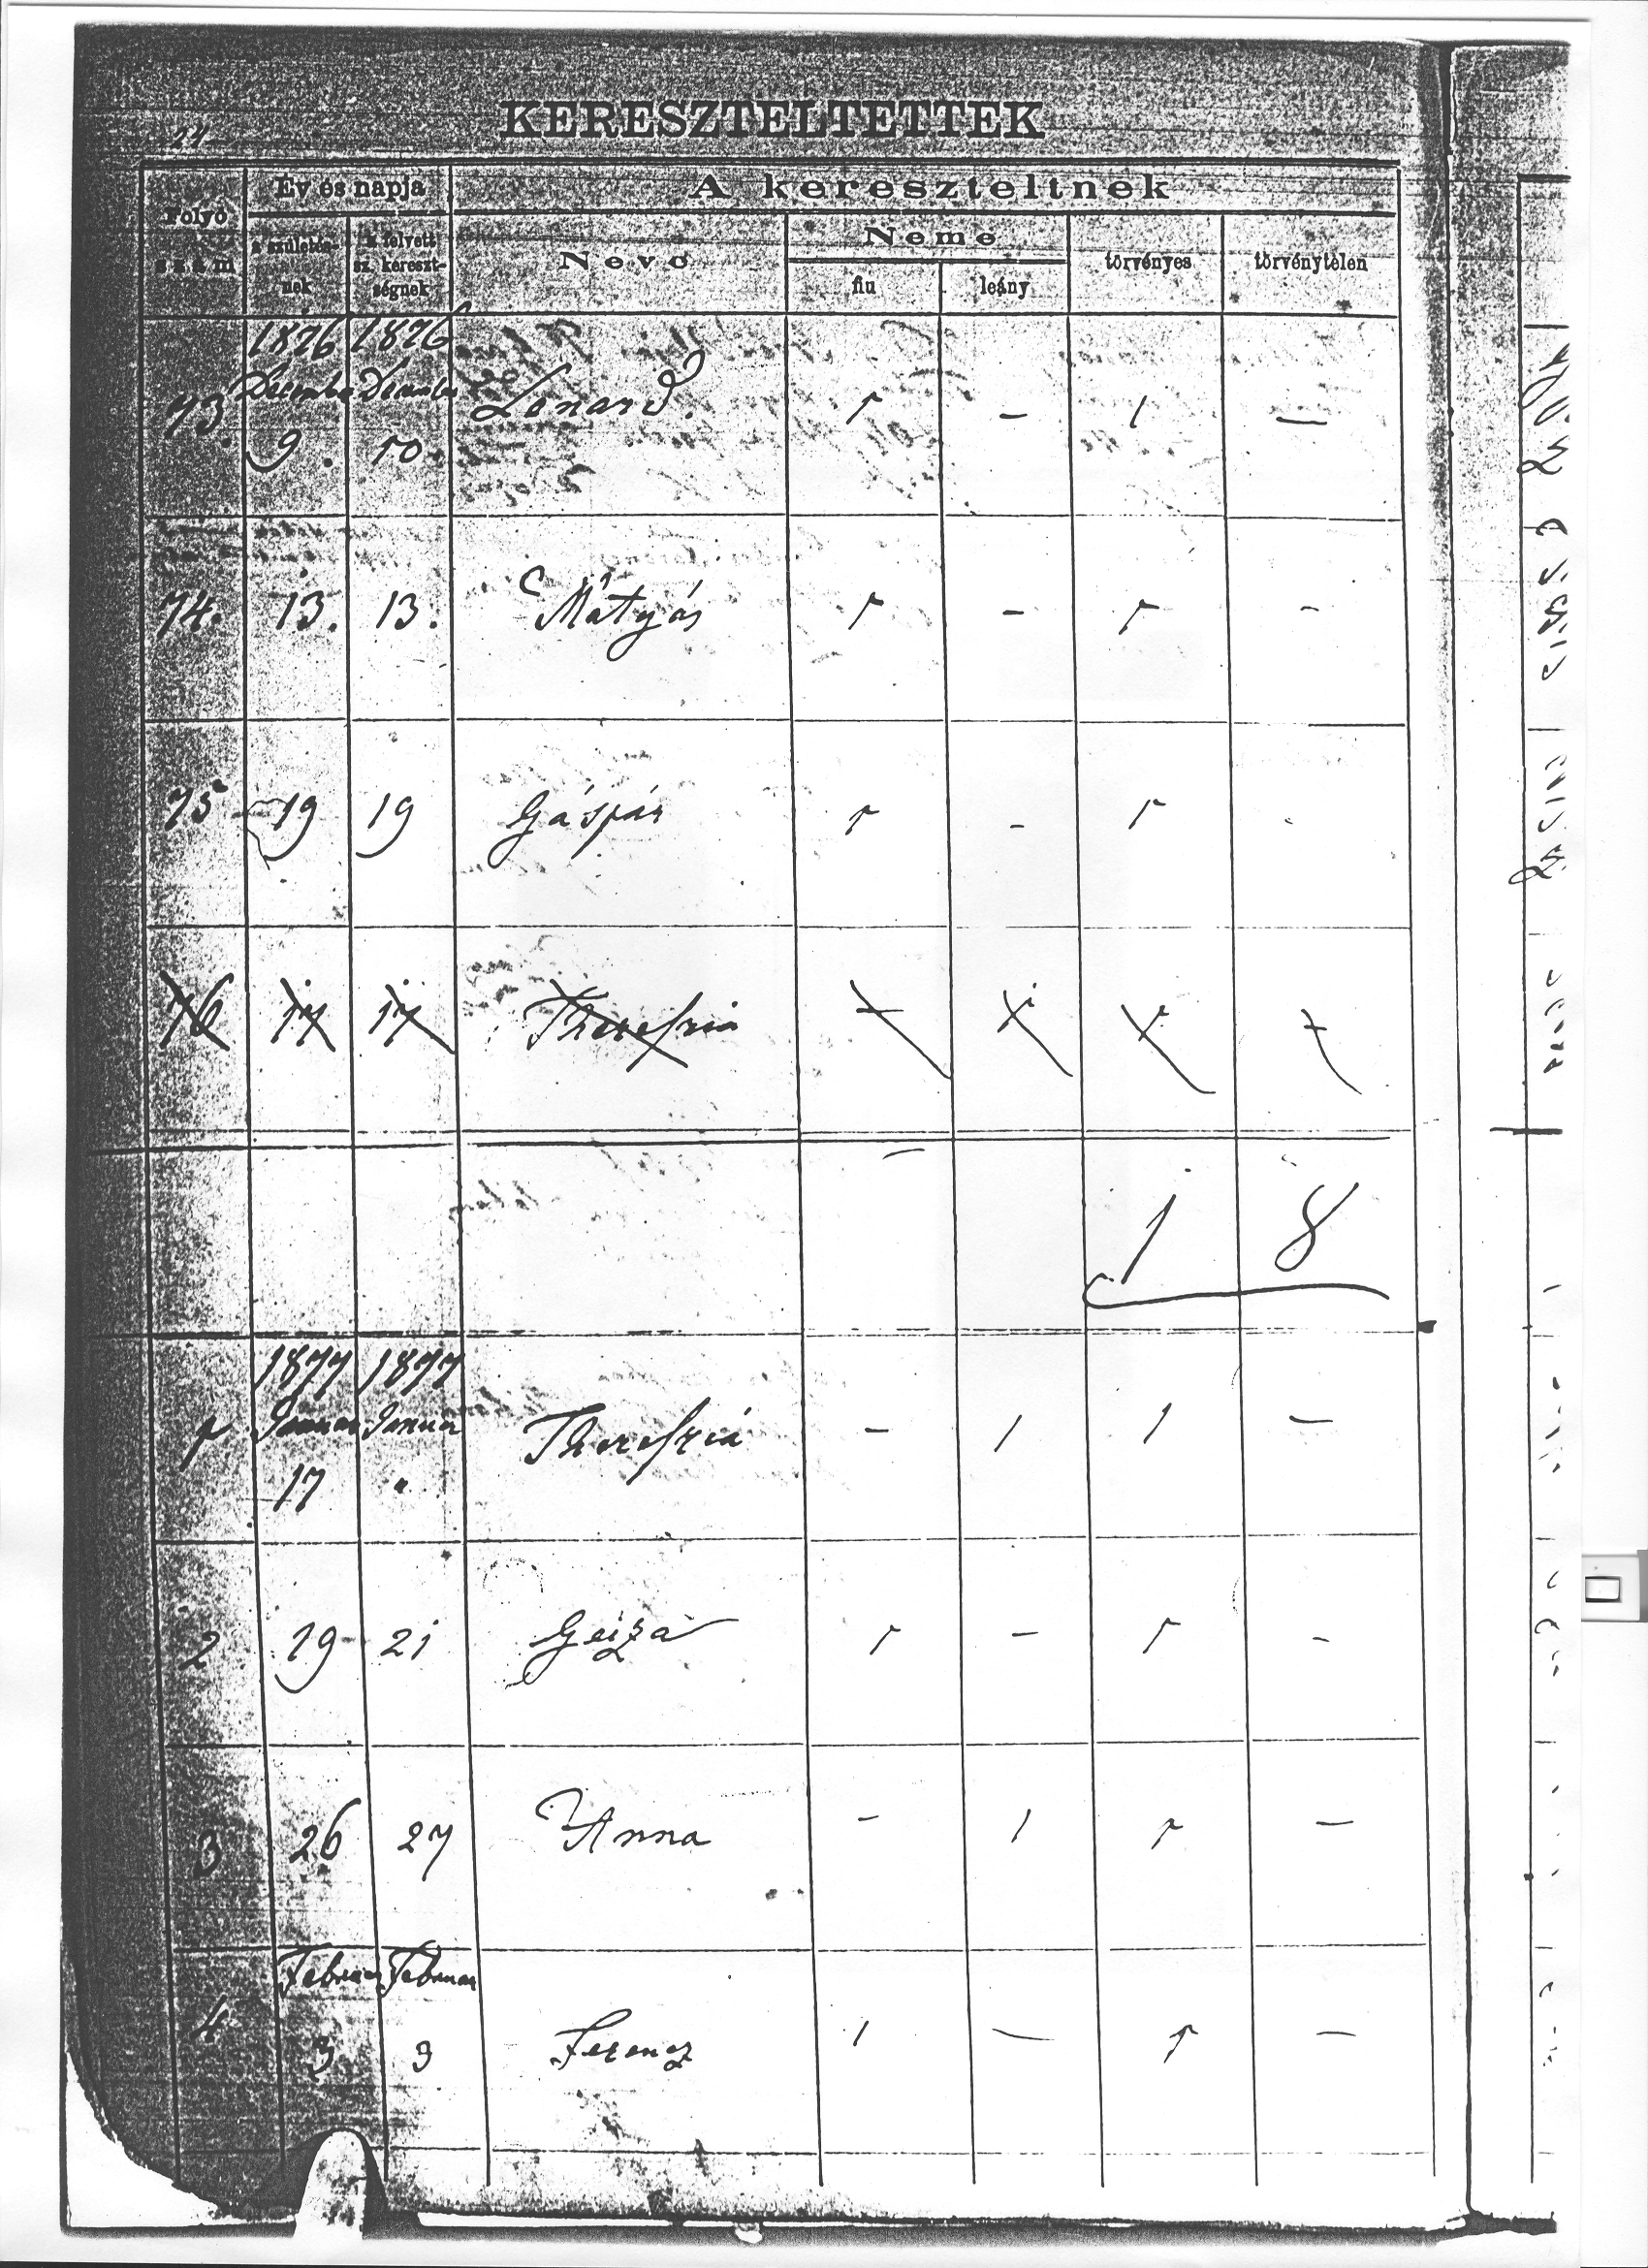 24
KERESZTELTETTEK
Folyó szám
Év és napja
a születés-
nek
a felvett
sz. kereszt-
ségnek
A kereszteltnek
Neve
Neme
fiu
leány
törvényes
törvénytelen
1876 1876
73. December 9. December 10. Lénard. 1 – 1 –
74. 13. 13. Mátyás 1 – 1 –
75 19 19 Gáspár 1 – 1 -
76 17 17 Therefzia
1 8
1877 1877
1 Januar 17 Januar " Therefziá – 1 1 –
2 19 21 Geiza 1 – 1 -
3 26 27 Anna – 1 1 –
Februar Februar
4 3 3 Ferencz 1 – 1 –